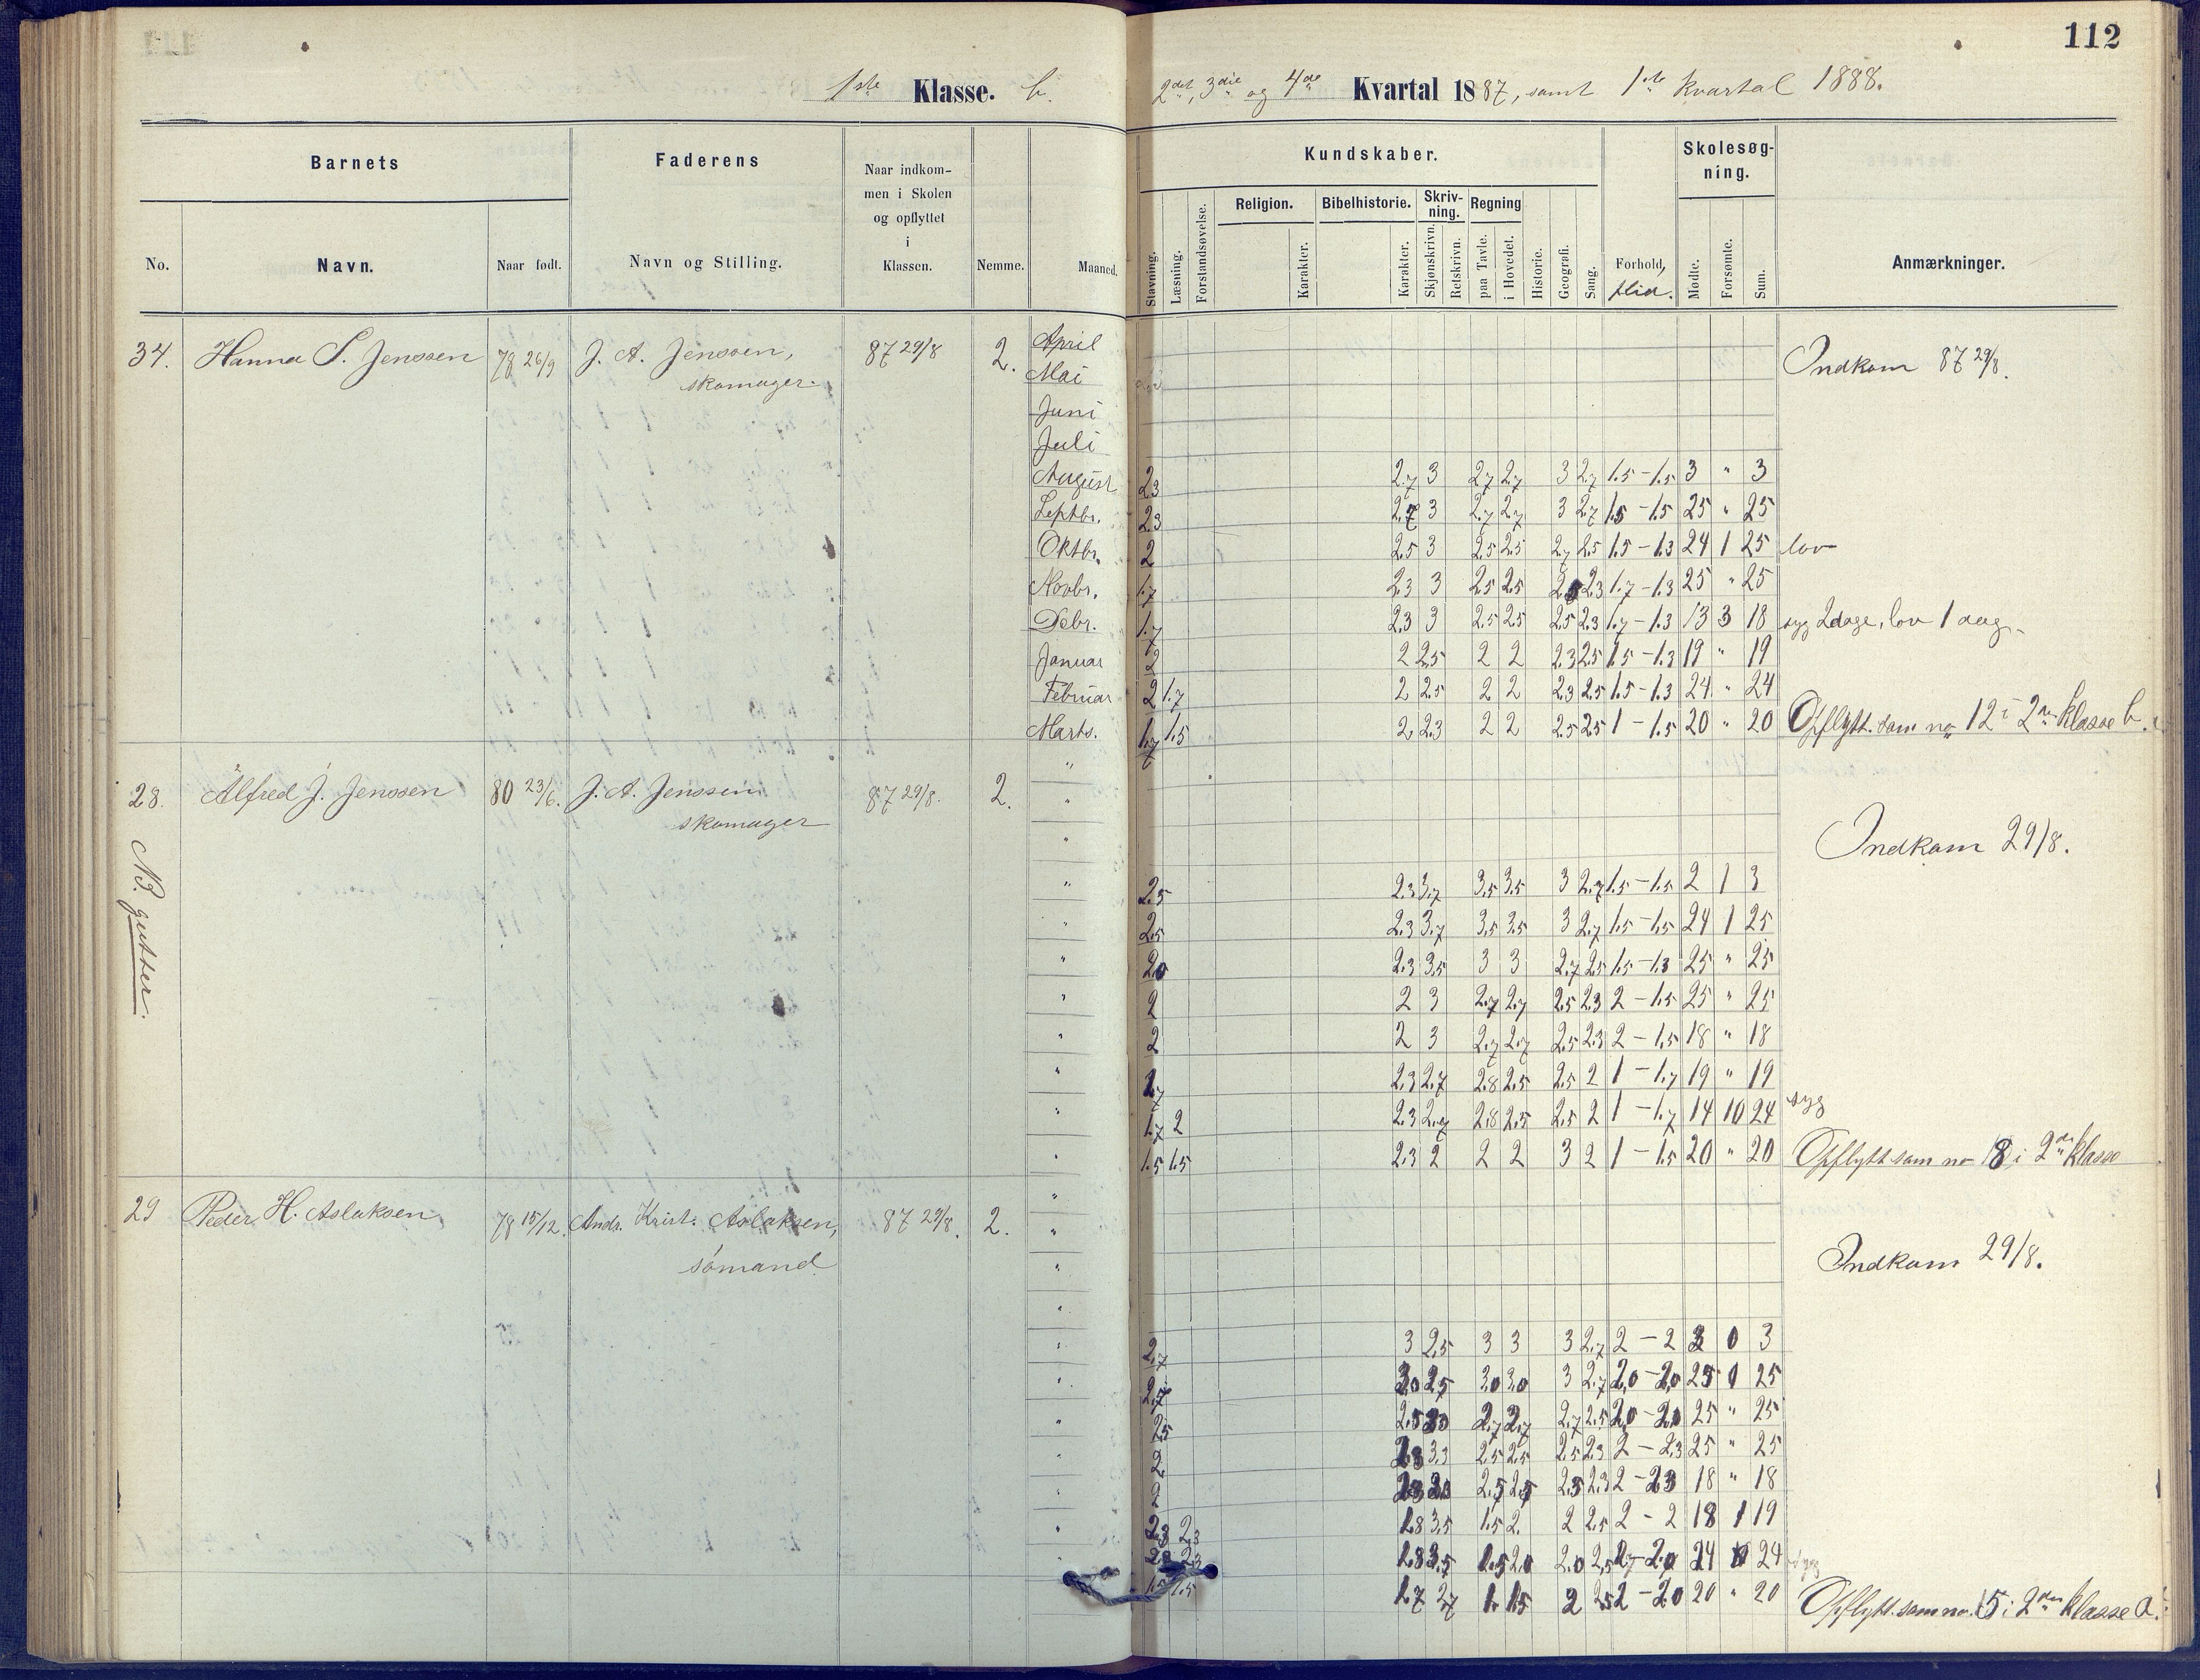 112
1ste Klasse. b. 2det, 3die og 4de Kvartal 1887, samt 1ste Kvartal 1888.
Barnets Faderens Naar indkom-
men i Skolen
og opflyttet
i
Klassen. Nemme. Maaned.
No. Navn. Naar født. Navn og Stilling.
Kundskaber. Skolesøg-
ning.
Stavning. Læsning. Forstandsøvelse. Religion. Karakter. Bibelhistorie. Karakter. Skriv-
ning. Skjønskrivn. Retskrivn. Regning paa Tavle. i Hovedet. Historie. Geografi. Sang. Forhold, flid. Mødte. Forsømte. Sum. Anmærkninger.
34. Hanna S. Jenssen 78 26/9 J. A. Jenssen, 87 29/8 2. April Indkom 87 29/8.
skomager. Mai
Juni
Juli
August 2.3 2.7 3 2.7 2.7 3 2.7 1.5 – 1.5 3 " 3
Septbr. 2.3 2.7 3 2.7 2.7 3 2.7 1.5 – 1.5 25 " 25
Oktbr. 2 2.5 3 2.5 2.5 2.7 2.5 1.5 – 1.3 24 1 25 lov
Novbr. 1.7 2.3 3 2.5 2.5 2.3 1.7 – 1.3 25 " 25
Debr. 1.7 2.3 3 2.5 2.5 2.5 2.3 1.7 – 1.3 13 3 18 syg 2 dage, lov 1 dag.
Januar 2 2 2.5 2 2 2.3 2.5 1.5 – 1.3 19 " 19
Februar 2 1.7 2 2.5 2 2 2.3 2.5 1.5 – 1.3 24 " 24
Marts. 1.7 1.5 2 2.3 2 2 2.5 2.5 1 – 1.5 20 " 20 Opflytt. som no 12 i 2den klasse b.
28. Alfred J. Jenssen 80 23/6. J. A. Jenssen 87 29/8. 2.
skomager
NB. gutter.
Indkom 29/8.
2.5 2.3 3.7 3.5 3.5 3 2.7 1.5 – 1.5 2 1 3
2.5 2.3 3.7 3.5 3.5 3 2.7 1.5 – 1.5 24 1 25
2.0 2.3 3.5 3 3 2.7 2.5 1.5 – 1.3 25 " 25
2 2 3 2.7 2.7 2.5 2.3 2 – 1.5 25 " 25
2 2 3 2.7 2.7 2.5 2.3 2 – 1.5 18 " 18
1.7 2.3 2.7 2.8 2.5 2.5 2 1 – 1.7 19 " 19
1.7 2 2.3 2.7 2.8 2.5 2.5 2 1 – 1.7 14 10 24 syg
1.5 1.5 2.3 2 2 2 3 2 1 – 1.5 20 " 20 Opflytt som no 18 i 2den klasse
29 Peder H. Aslaksen 78 15/12. Andr. Krist. Aslaksen, 87 29/8. 2.
sömand
Indkom 29/8.
2.7 3 2.5 3 3 3 2.7 2 – 2 3 0 3
2.7 3.0 2.5 3.0 3.0 3 2.7 2.0 – 2.0 25 0 25
2.5 2.5 2.7 2.7 2.7 2.5 2.0 – 2.0 25 " 25
2 3.3 2.5 2.5 2.5 2.3 2 – 2.3 25 " 25
2 2.5 2.5 2.5 2.3 2 – 2.3 18 " 18
2.3 1.8 3.5 1.5 2. 2 2.5 2 – 2 18 1 19
2.3 1.8 3.5 1.5 2.0 2.0 2.5 24 24
1.5 1.7 2.7 1.5 2 2.5 2 – 2.0 20 " 20 Opflytt. som no. 15 i 2den klasse a.